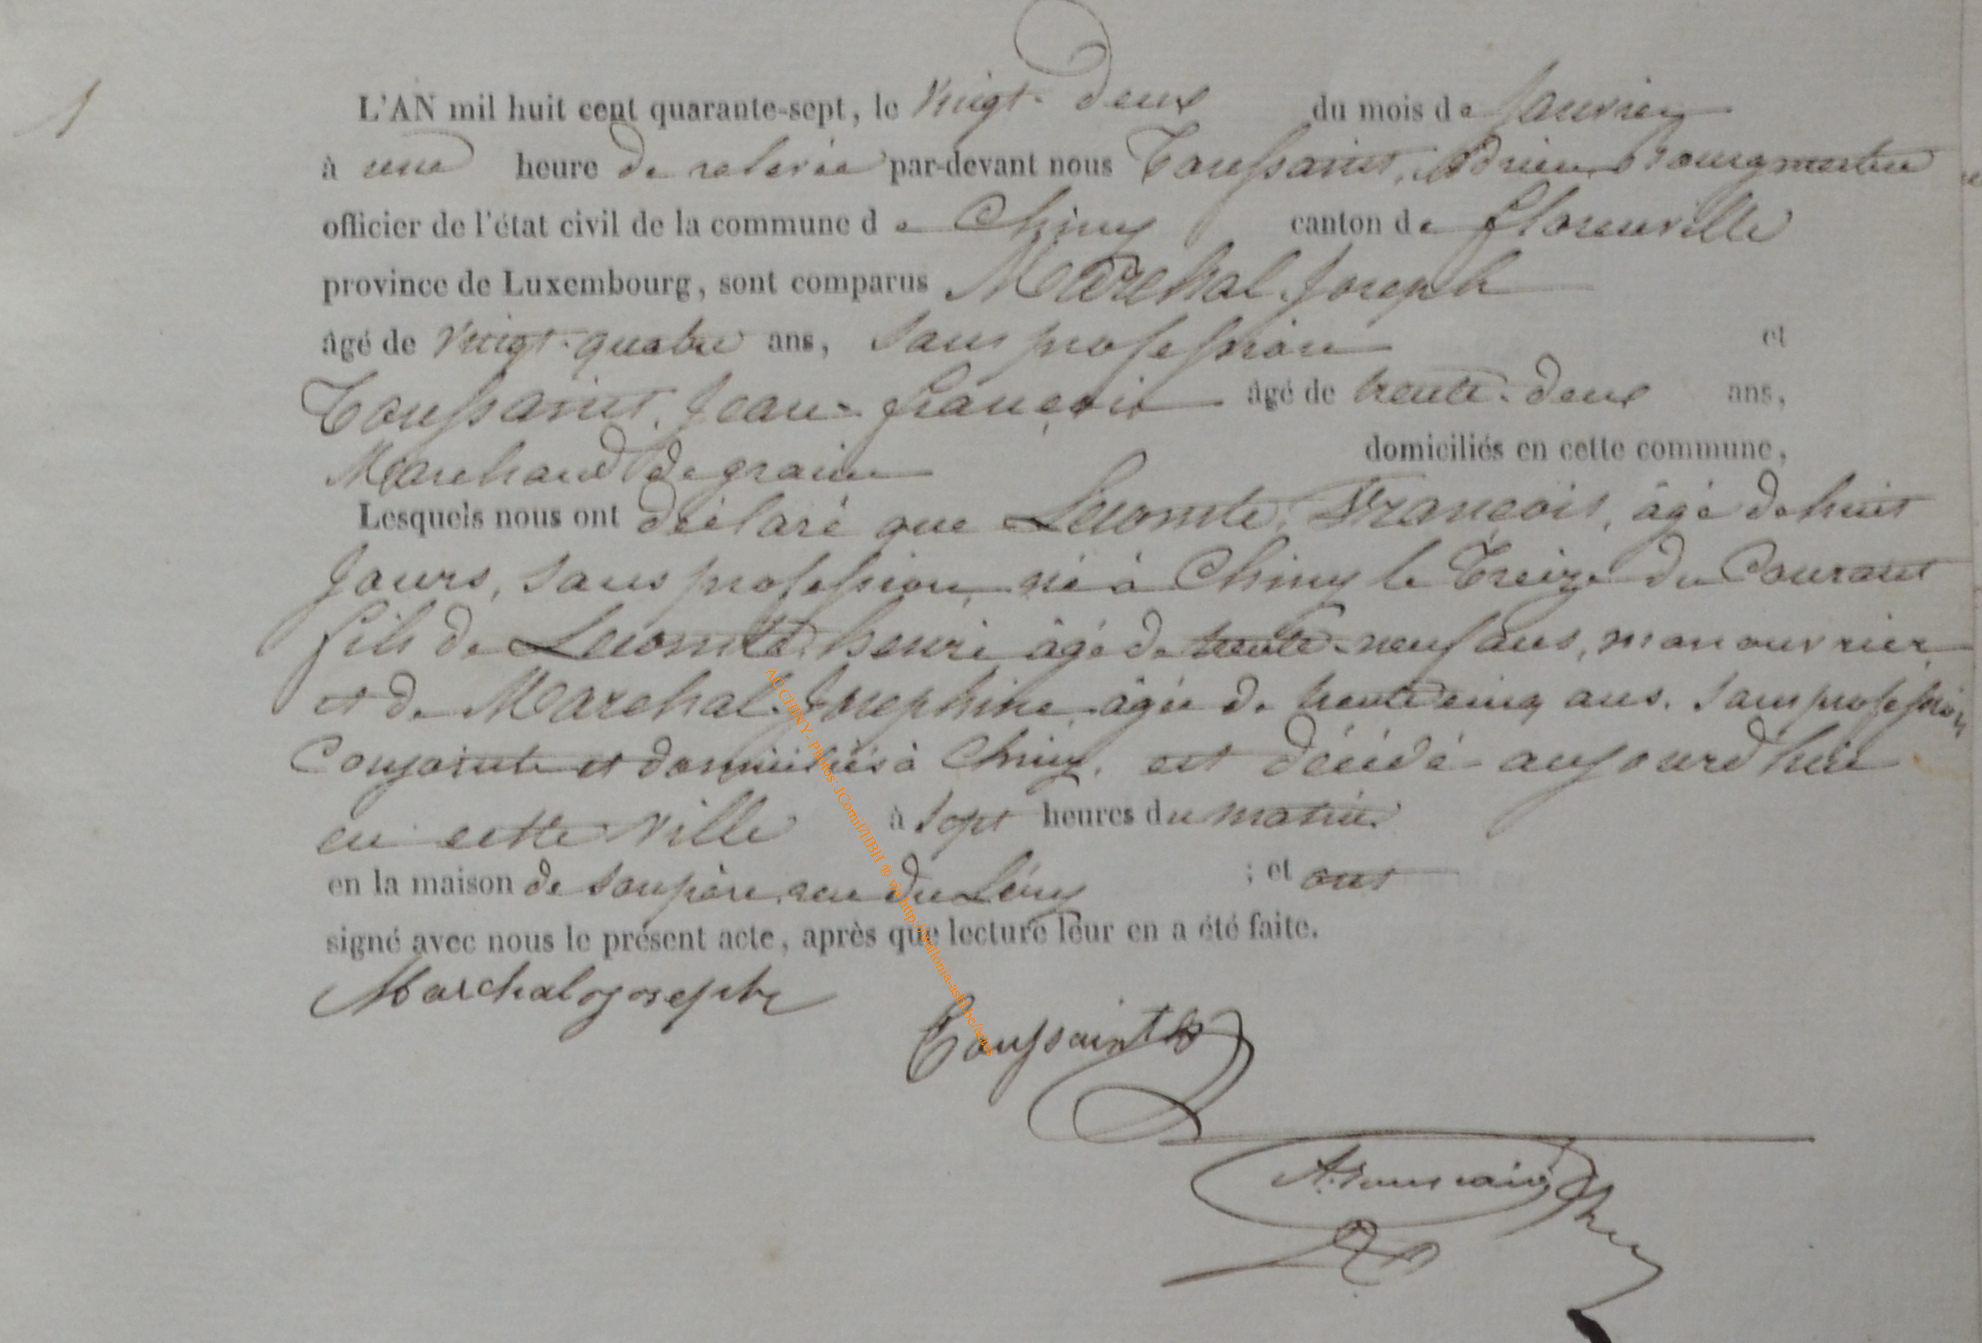 1
L'AN mil huit cent quarante-sept, le vingt-deux du mois de Janvier
à une heure de relevée par-devant nous Toussaint, Adrien Bourgmestre
officier de l'état civil de la commune de Chiny canton de florenville
province de Luxembourg, sont comparus Marechal Joseph
âgé de vingt-quatre ans, sans profession et
Toussaint, Jean-françois âgé de trente-deux ans,
Marchand de grains domiciliés en cette commune,
Lesquels nous ont déclaré que Lecomte, François, âgé de huit
Jours, sans profession, né à Chiny le Treize du Courant
fils de Lecomte henri âgé de trente-neuf ans, manouvrier
et de Marechal Josephine âgée de trente cinq ans, sans profession
Conjoints et domiciliés à Chiny, est décédé aujourd'hui
en cette ville à sept heures du matin
en la maison de son père, rue du ; et ont
signé avec nous le présent acte, après que lecture leur en a été faite.
Marchal joseph
Toussaint
A. Toussaint